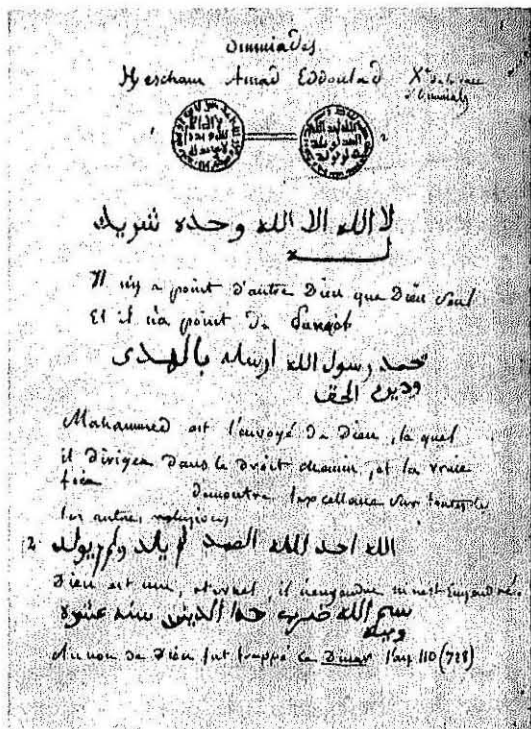 Ommiades
Hescham Amad Eddoulad Xe de la race
d'Ommiah
1 2
لا الله الا الله وحده شريك
له
Il n'y a point d'autre Dieu que Dieu seul
Et il n'a point de
محمد رسول الله ارسله بالهدى
ودين الحق
Mahammed est l'envoyé de Dieu, le quel
il dirigea dans le droit chemin, et la vraie
demontre l'excellence sur toutes les
les autres religions
2. الله احد الله الصمد لم يلد ولم يولد
Dieu est une, eternel, il n'engendre ni n'est Engendré.
بسم الله ضرب هذا الدينر سنه عشره
وميه
Au nom de Dieu fut frappé ce Dinar l'an 110 (728)